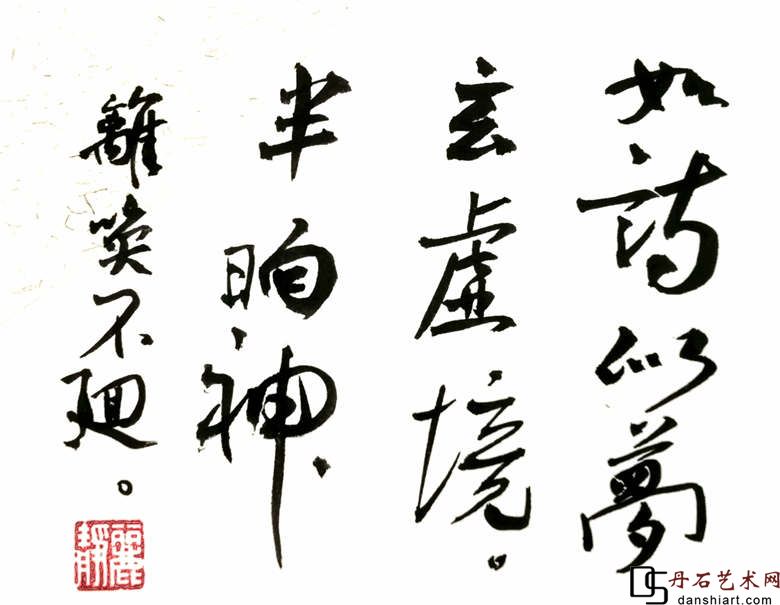 如詩似夢
玄虛境。
半晌神、
離笑不廻。
靜麗
DS 丹石艺术网
danshiart.com